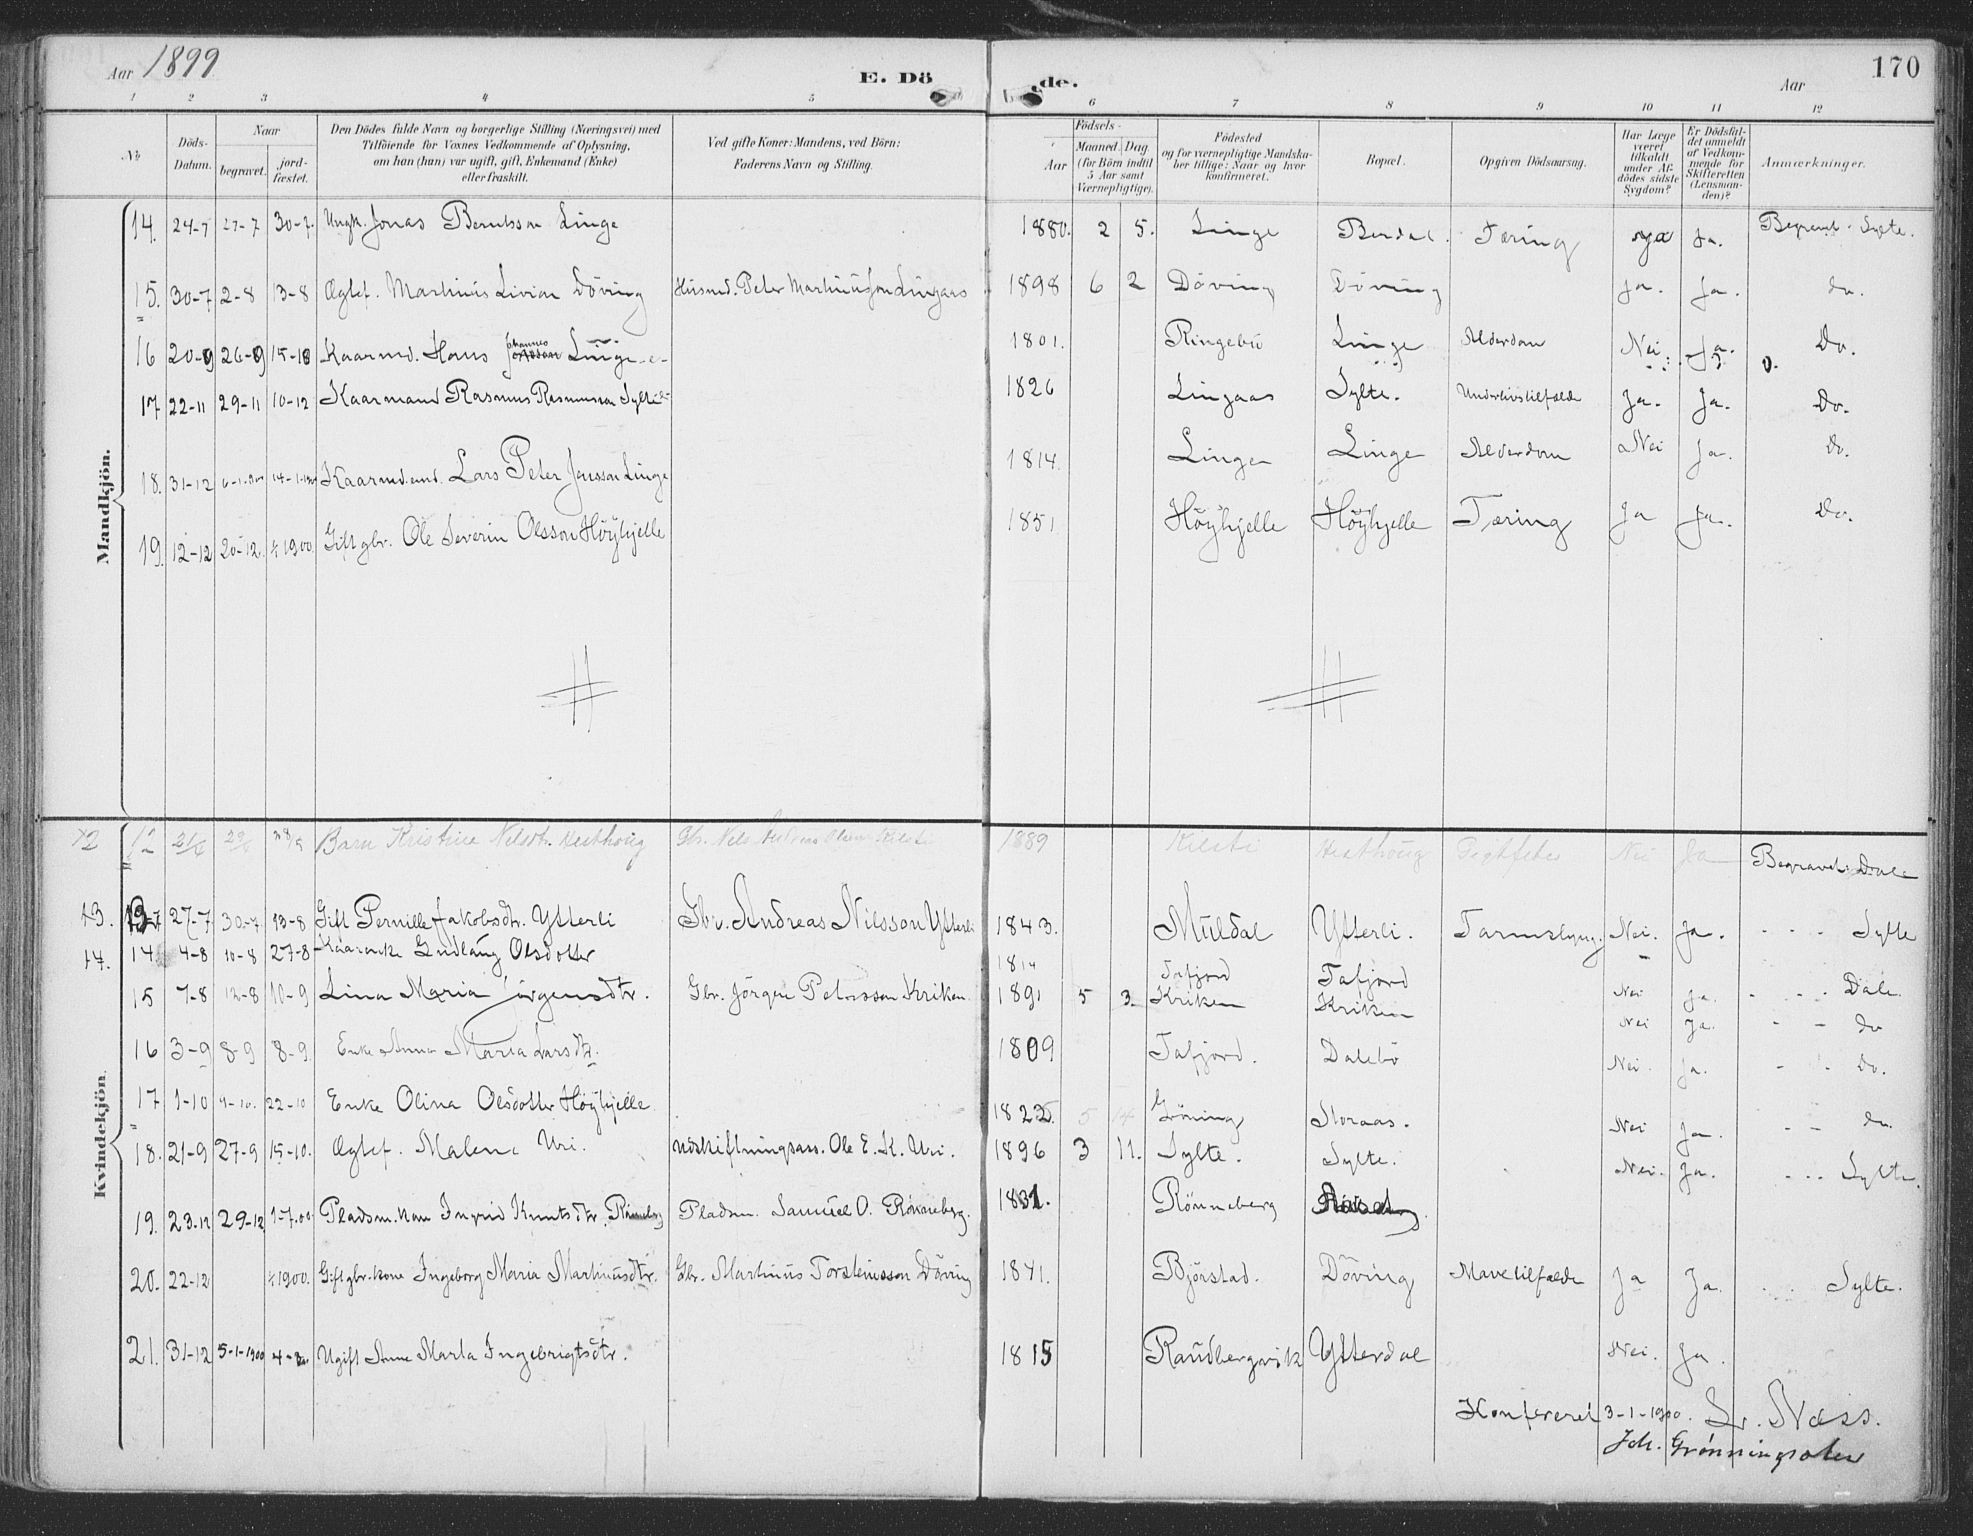 Aar 1899 E. Döde. Aar 170
1 2 3 4 5 6 7 8 9 10 11 12
No Döds-Datum. Naar begravet. jord-fæstet. Den Dödes fulde Navn og borgerlige Stilling (Næringsvei) med Tilföiende for Voxnes Vedkommende af Oplysning, om han (hun) var ugift, gift, Enkemand (Enke) eller fraskilt. Ved gifte Koner: Mandens, ved Börn: Faderens Navn og Stilling. Födsels- Aar Maaned. Dag. (for Börn indtil 5 Aar samt Værnepligtige). Födested og for værnepligtige Mandskaber tillige: Naar og hvor konfirmeret. Bopæl. Opgiven Dödsaarsag. Har Læge været tilkaldt under Afdödes sidste Sygdom? Er Dödsfaldet anmeldt af Vedkommende for Skifteretten (Lensmanden)? Anmærkninger.
Mandkjön.
14. 24-7 27-7 30-7. Ungk. Jonas Berntsson Linge 1880. 2 5. Linge Berdal. Tæring Ja. Begravet Sylte.
15. 30-7 2-8 13-8 Ægtef. Martinus Livion Döving Husmd. Peter Martinusson Lingaas 1898 6 2 Döving Döving Ja. Ja. do.
16 20-9 26-9 15-10 Kaarmd. Hans Johannes Linge 1801. Ringebu Linge Alderdom Nei Ja. Do.
17 22-11 29-11 10-12 Kaarmand Rasmus Rasmusson Sylte 1826 Lingaas Sylte. Underlivstilfælde Ja. Ja. Do.
18. 31-12 14-1- Kaarmd. emd. Lars Peter Jensson Linge 1814. Linge Linge Alderdom Nei Ja. Do.
19. 12-12 20-12. 1900. Gift gbr. Ole Severin Olsson Höyhjelle 1851 Höyhjelle Höyhjelle Tæring Ja Ja. Do.
Kvindekjön.
12 12 21/6 29/6 Barn Kristine Nilsdtr. Hesthoug Gbr. Nils Andreas Olsen Kilsti 1889 Kilsti Hesthoug Gigtfeber Nei Ja Begravet: Dale
13. 13 27-7 30-7 13-8 Gift Pernille Jakobsdtr. Ytterli Gbr. Andreas Nilsson Ytterli 1843. Muldal Ytterli. Tarmslyng. Nei. Ja. Sylte
14. 14 4-8 10-8 27-8 Kaarenke Gudlaug Olsdotter 1814 Tafjord Tafjord Nei Ja. Dale.
15 7-8 12-8 10-9 Lina Maria Jörgensdtr. Gbr. Jörgen Petersson Kriken 1891 5 3 Kriken Kriken Nei Ja. do
16 3-9 8-9 8-9. Enke Anna Maria Larsdtr. 1809 Tafjord. Dalebö Nei. Ja. Do.
17 1-10 4-10. 22-10 Enke Olina Olsdotter Höyhjelle 1822 Gröning Storaas. Nei Ja. do.
18. 21-9 27-9 15-10. Ægtef. Malene Uri. Udskiftningsass. Ole E. K. Uri. 1896 3 11. Sylte. Sylte. Nei. Ja. Sylte.
19. 23-12 29-12 1-7.00 Pladsm. kone Ingrid Knutsdtr. Rönneberg Pladsm. Samuel O. Rönneberg. 1831. Rönneberg
20. 22-12 1900. Gift gbr. kone Ingeborg Maria Martinusdtr. Gbr. Martinus Torsteinsson Döving 1841. Bjørstad. Döving Mavetilfælde Ja Ja. Sylte.
21. 31-12 5-1-1900 Ugift Anne Marta Ingebrigtsdtr. 1815 Raudbergvik Ytterdal Nei. Ja.
Konfereret 3-1-1900. Lr. Næss.
Joh. Grønningsæter